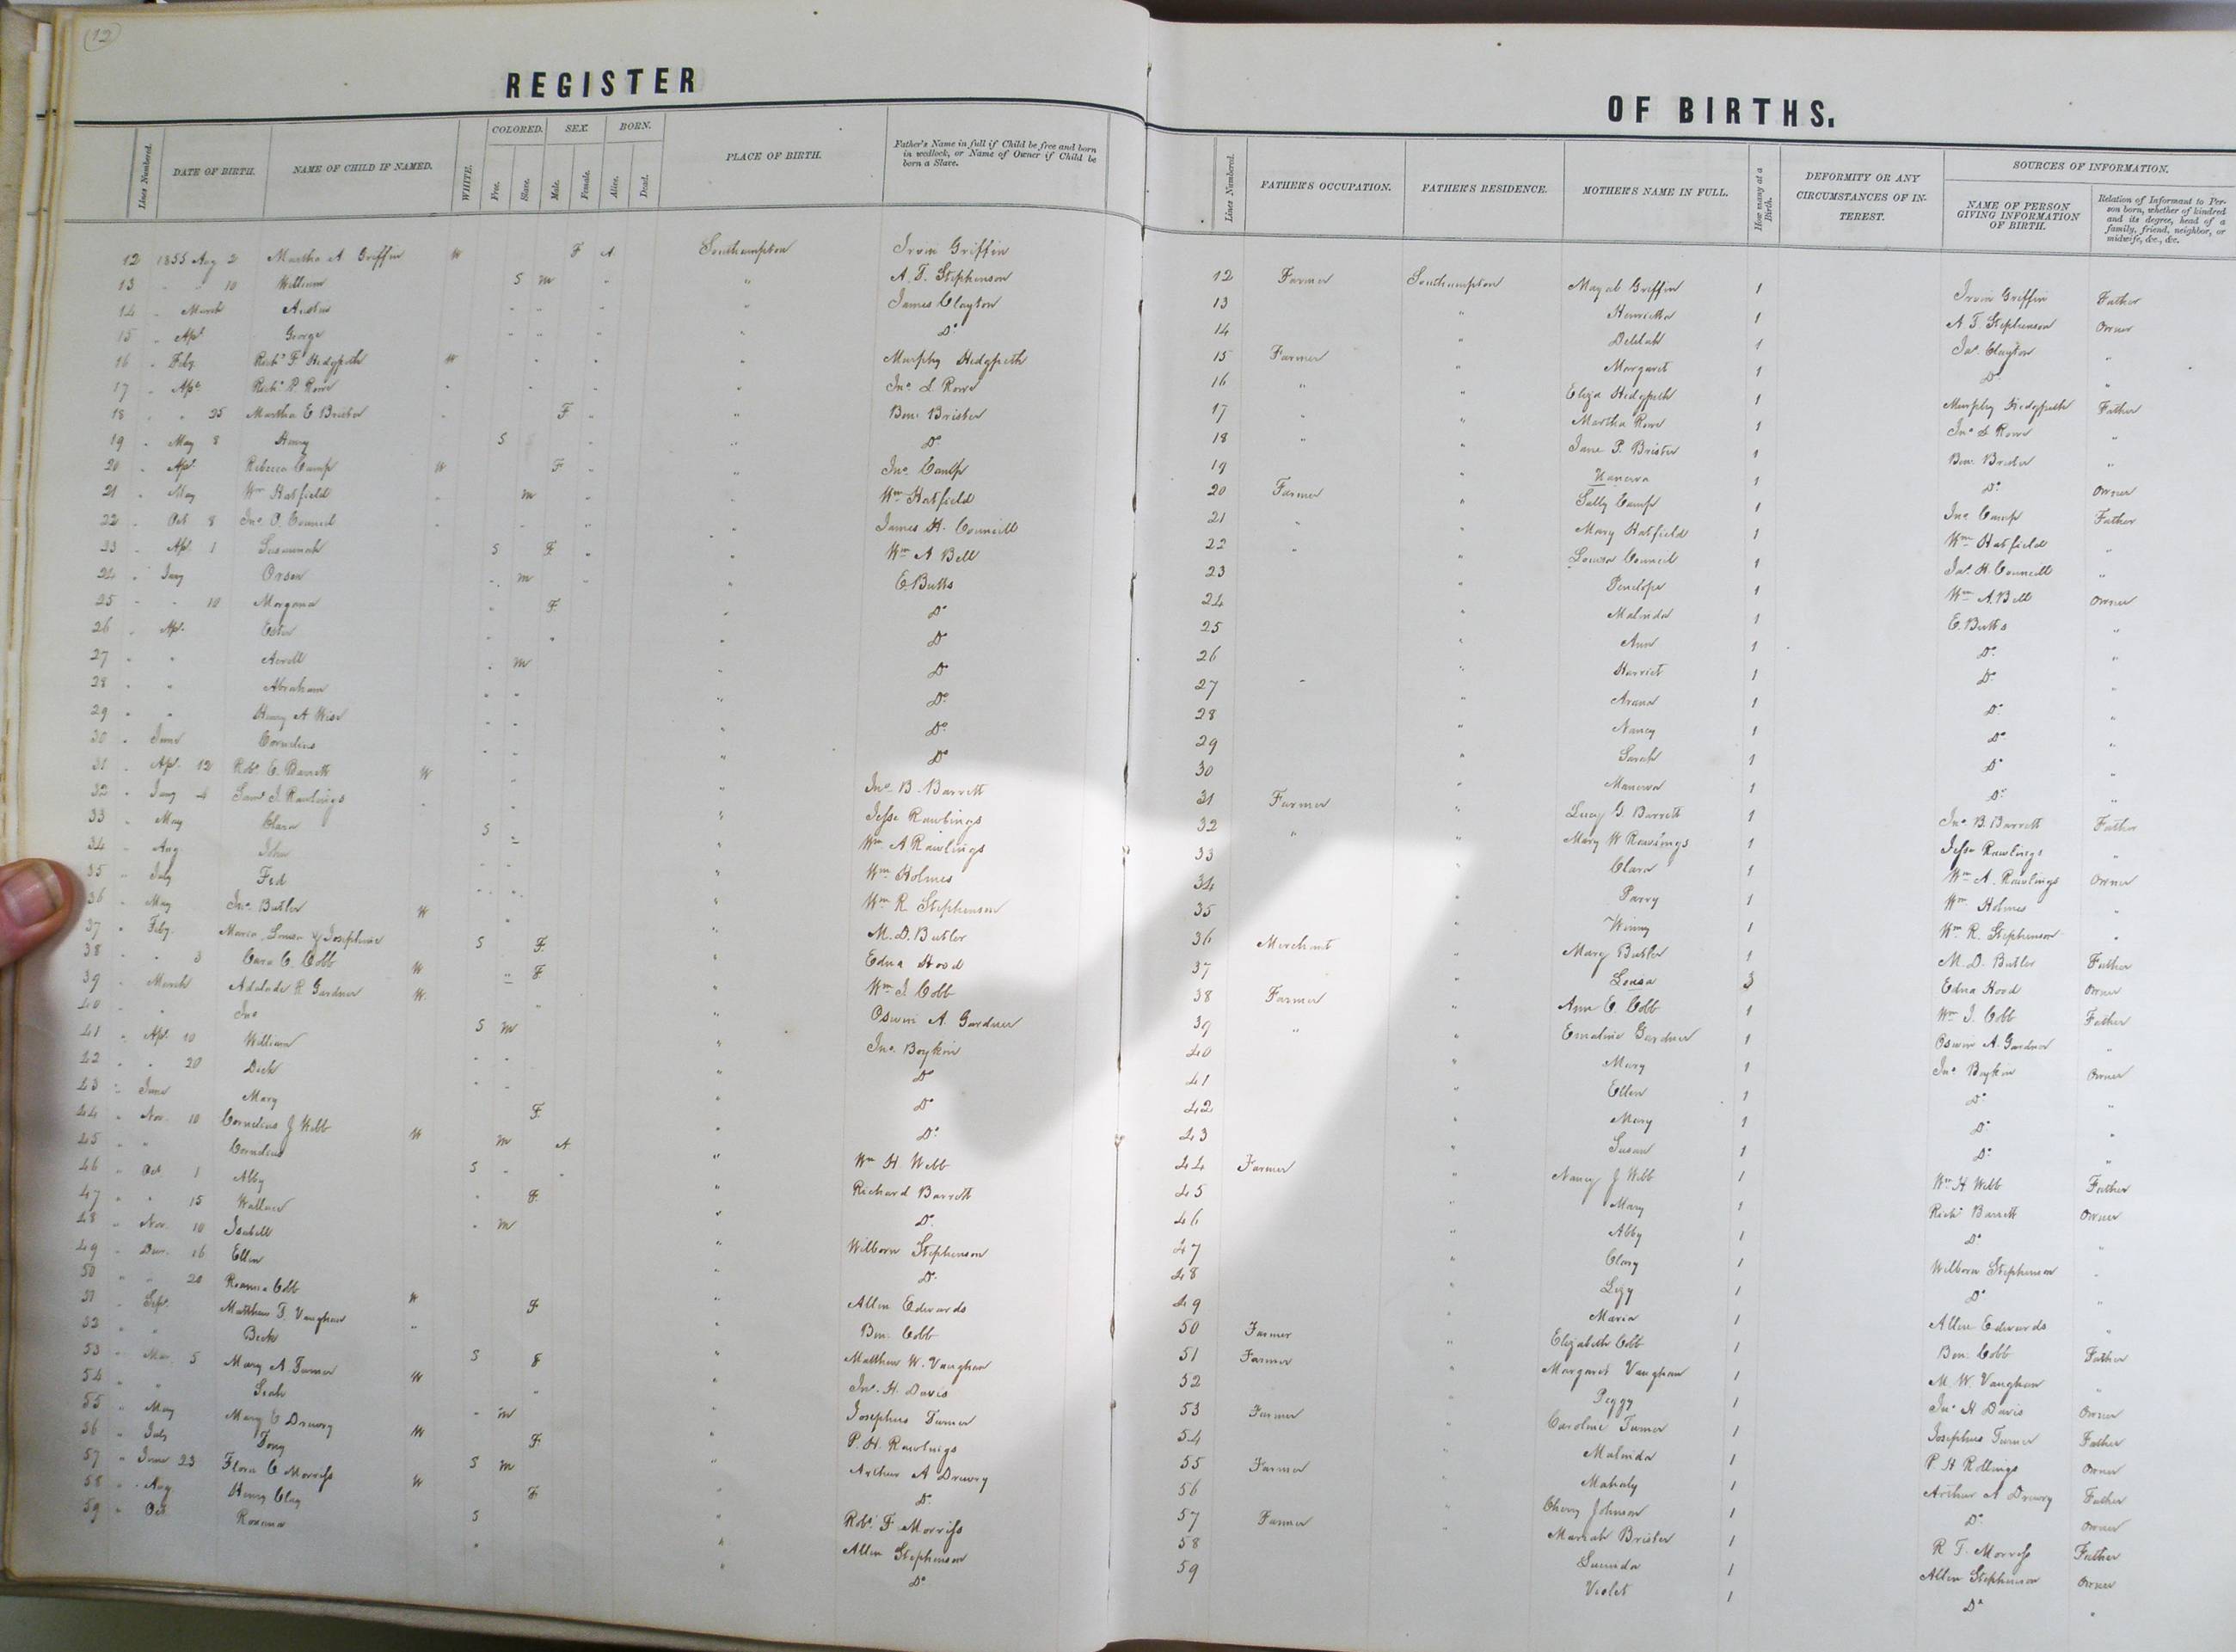 (12)
REGISTER
Lines Numbered. DATE OF BIRTH. NAME OF CHILD IF NAMED. WHITE. COLORED. Free. Slave. SEX. Male. Female. BORN. Alive. Dead. PLACE OF BIRTH. Father's Name in full if Child be free and born in wedlock, or Name of Owner if Child be born a Slave.
12 1855 Aug 2 Martha A Griffin W F A Southampton Irvin Griffin
13 " " 10 William S m " " A. T. Stephenson
14 " March " " " " James Clayton
15 " Apl George " " " " Do
16 " Feby Richd F Hedgpeth W " " " Murphy Hedgpeth
17 " Apl Richd P. Rowe " " " " Jno L Rowe
18 " " 25 Martha E Brister " F " " Ben Brister
19 " May 8 Henry S " " Do
20 " Apl Rebecca Camp W F " " Jno Camp
21 " May Wm Hatfield " m " " Wm Hatfield
22 " Oct 8 Jno O. Council " " " " James H. Councill
23 " Apl 1 Susannah S F " " Wm A Bell
24 " Jany Orsen " m " " E. Butts
25 " " 10 " F " Do
26 " Apl " " " Do
27 " " " m " Do
28 " " Abraham " " " Do
29 " " Henry A Wise " " " Do
30 " June Cornelius " " " Do
31 " Apl 12 Robt E. Barrett W " " Jno B. Barrett
32 " Jany 4 Saml J. Rawlings " " " Jesse Rawlings
33 " May Clara S " " Wm A Rawlings
34 " Aug " " " Wm Holmes
35 " July Fed " " " Wm R. Stephenson
36 " May Jno Butler W " " M. D. Butler
37 " Feby Maria, Louisa & Josephine S F " Edna Hood
38 " " 3 Cara C. Cobb W F " Wm J. Cobb
39 " March Adalade R Gardner W " " Oswin A. Gardner
40 " " Jno S m " Jno Boykin
41 " Apl 10 William " " " Do
42 " " 20 Dick " " " Do
43 " June Mary F " Do
44 " Nov 10 Cornelius J Webb W m A " Wm H. Webb
45 " " Cornelius S " " " Richard Barrett
46 " Oct 1 Abby " F " Do
47 " " 15 Wallace " m " Wilborn Stephenson
48 " Nov 10 Isabell " Do
49 " Dec 16 Ellen F " Allen Edwards
50 " " 20 Roanna Cobb W " Ben. Cobb
51 " Sept Matthew T. Vaughan " " Matthew W. Vaughan
52 " " Beck S F " Jno. H. Davis
53 " Mar 5 Mary A Turner W " " Josephus Turner
54 " " " m " P. H. Rawlings
55 " May Mary E Drewry W F " Arthur A Drewry
56 " July Tony S m " Do
57 " June 23 Flora C Morriss W F " Robt F Morriss
58 " Aug Henry Clay S " Allen Stephenson
59 " Oct Roxana " " Do
OF BIRTHS.
Lines Numbered. FATHER'S OCCUPATION. FATHER'S RESIDENCE. MOTHER'S NAME IN FULL. How many at a Birth. DEFORMITY OR ANY CIRCUMSTANCES OF INTEREST. SOURCES OF INFORMATION. NAME OF PERSON GIVING INFORMATION OF BIRTH. Relation of Informant to Person born, whether of kindred and its degree, head of a family, friend, neighbor, or midwife, &c., &c.
12 Farmer Southampton Griffin 1 Irvin Griffin Father
13 " Henrietta 1 A T. Stephenson Owner
14 " Delilah 1 Jas. Clayton "
15 Farmer " Margaret 1 Do "
16 " " Eliza Hedgpeth 1 Murphy Hedgpeth Father
17 " " Martha Rowe 1 Jno L Rowe "
18 " " Jane P. Brister 1 Ben Brister "
19 " 1 Do Owner
20 Farmer " Sally Camp 1 Jno Camp Father
21 " " Mary Hatfield 1 Wm Hatfield "
22 " " Louisa Council 1 Jas. H. Councill "
23 " Penelope 1 Wm A. Bell Owner
24 " Malinda 1 E. Butts "
25 " Ann 1 Do "
26 " Harriet 1 Do "
27 " " 1 Do "
28 " Nancy 1 Do "
29 " Sarah 1 Do "
30 " Manerva 1 Do "
31 Farmer " Lucy G. Barrett 1 Jno. B. Barrett Father
32 " " Mary W Rawlings 1 Jesse Rawlings "
33 Clara 1 Wm A. Rawlings Owner
34 " Parry 1 Wm Holmes "
35 " Winny 1 Wm R. Stephenson "
36 Merchant " Mary Butler 1 M. D. Butler Father
37 " Louisa 3 Edna Hood Owner
38 Farmer " Ann E. Cobb 1 Wm J. Cobb Father
39 " " Emaline Gardner 1 Oswin A. Gardner "
40 " Mary 1 Jno Boykin Owner
41 " Ellen 1 Do "
42 " Mary 1 Do "
43 " Susan 1 Do "
44 Farmer " Nancy J Webb 1 Wm H Webb Father
45 " Mary 1 Richd Barrett Owner
46 " Abby 1 Do "
47 " Clary 1 Wilborn Stephenson "
48 " Lizy 1 Do "
49 " Maria 1 Allen Edwards "
50 Farmer " Elizabeth Cobb 1 Ben. Cobb Father
51 Farmer " Margaret Vaughan 1 M. W. Vaughan "
52 " Peggy 1 Jno H Davis Owner
53 Farmer " Caroline Turner 1 Josephus Turner Father
54 " Malinda 1 P H Rollings Owner
55 Farmer " Mahaly 1 Arthur A Drewry Father
56 " Cherry Johnson 1 Do Owner
57 Farmer " Mariah Brister 1 R T. Morriss Father
58 Lucinda 1 Allen Stephenson Owner
59 Violet 1 Do "